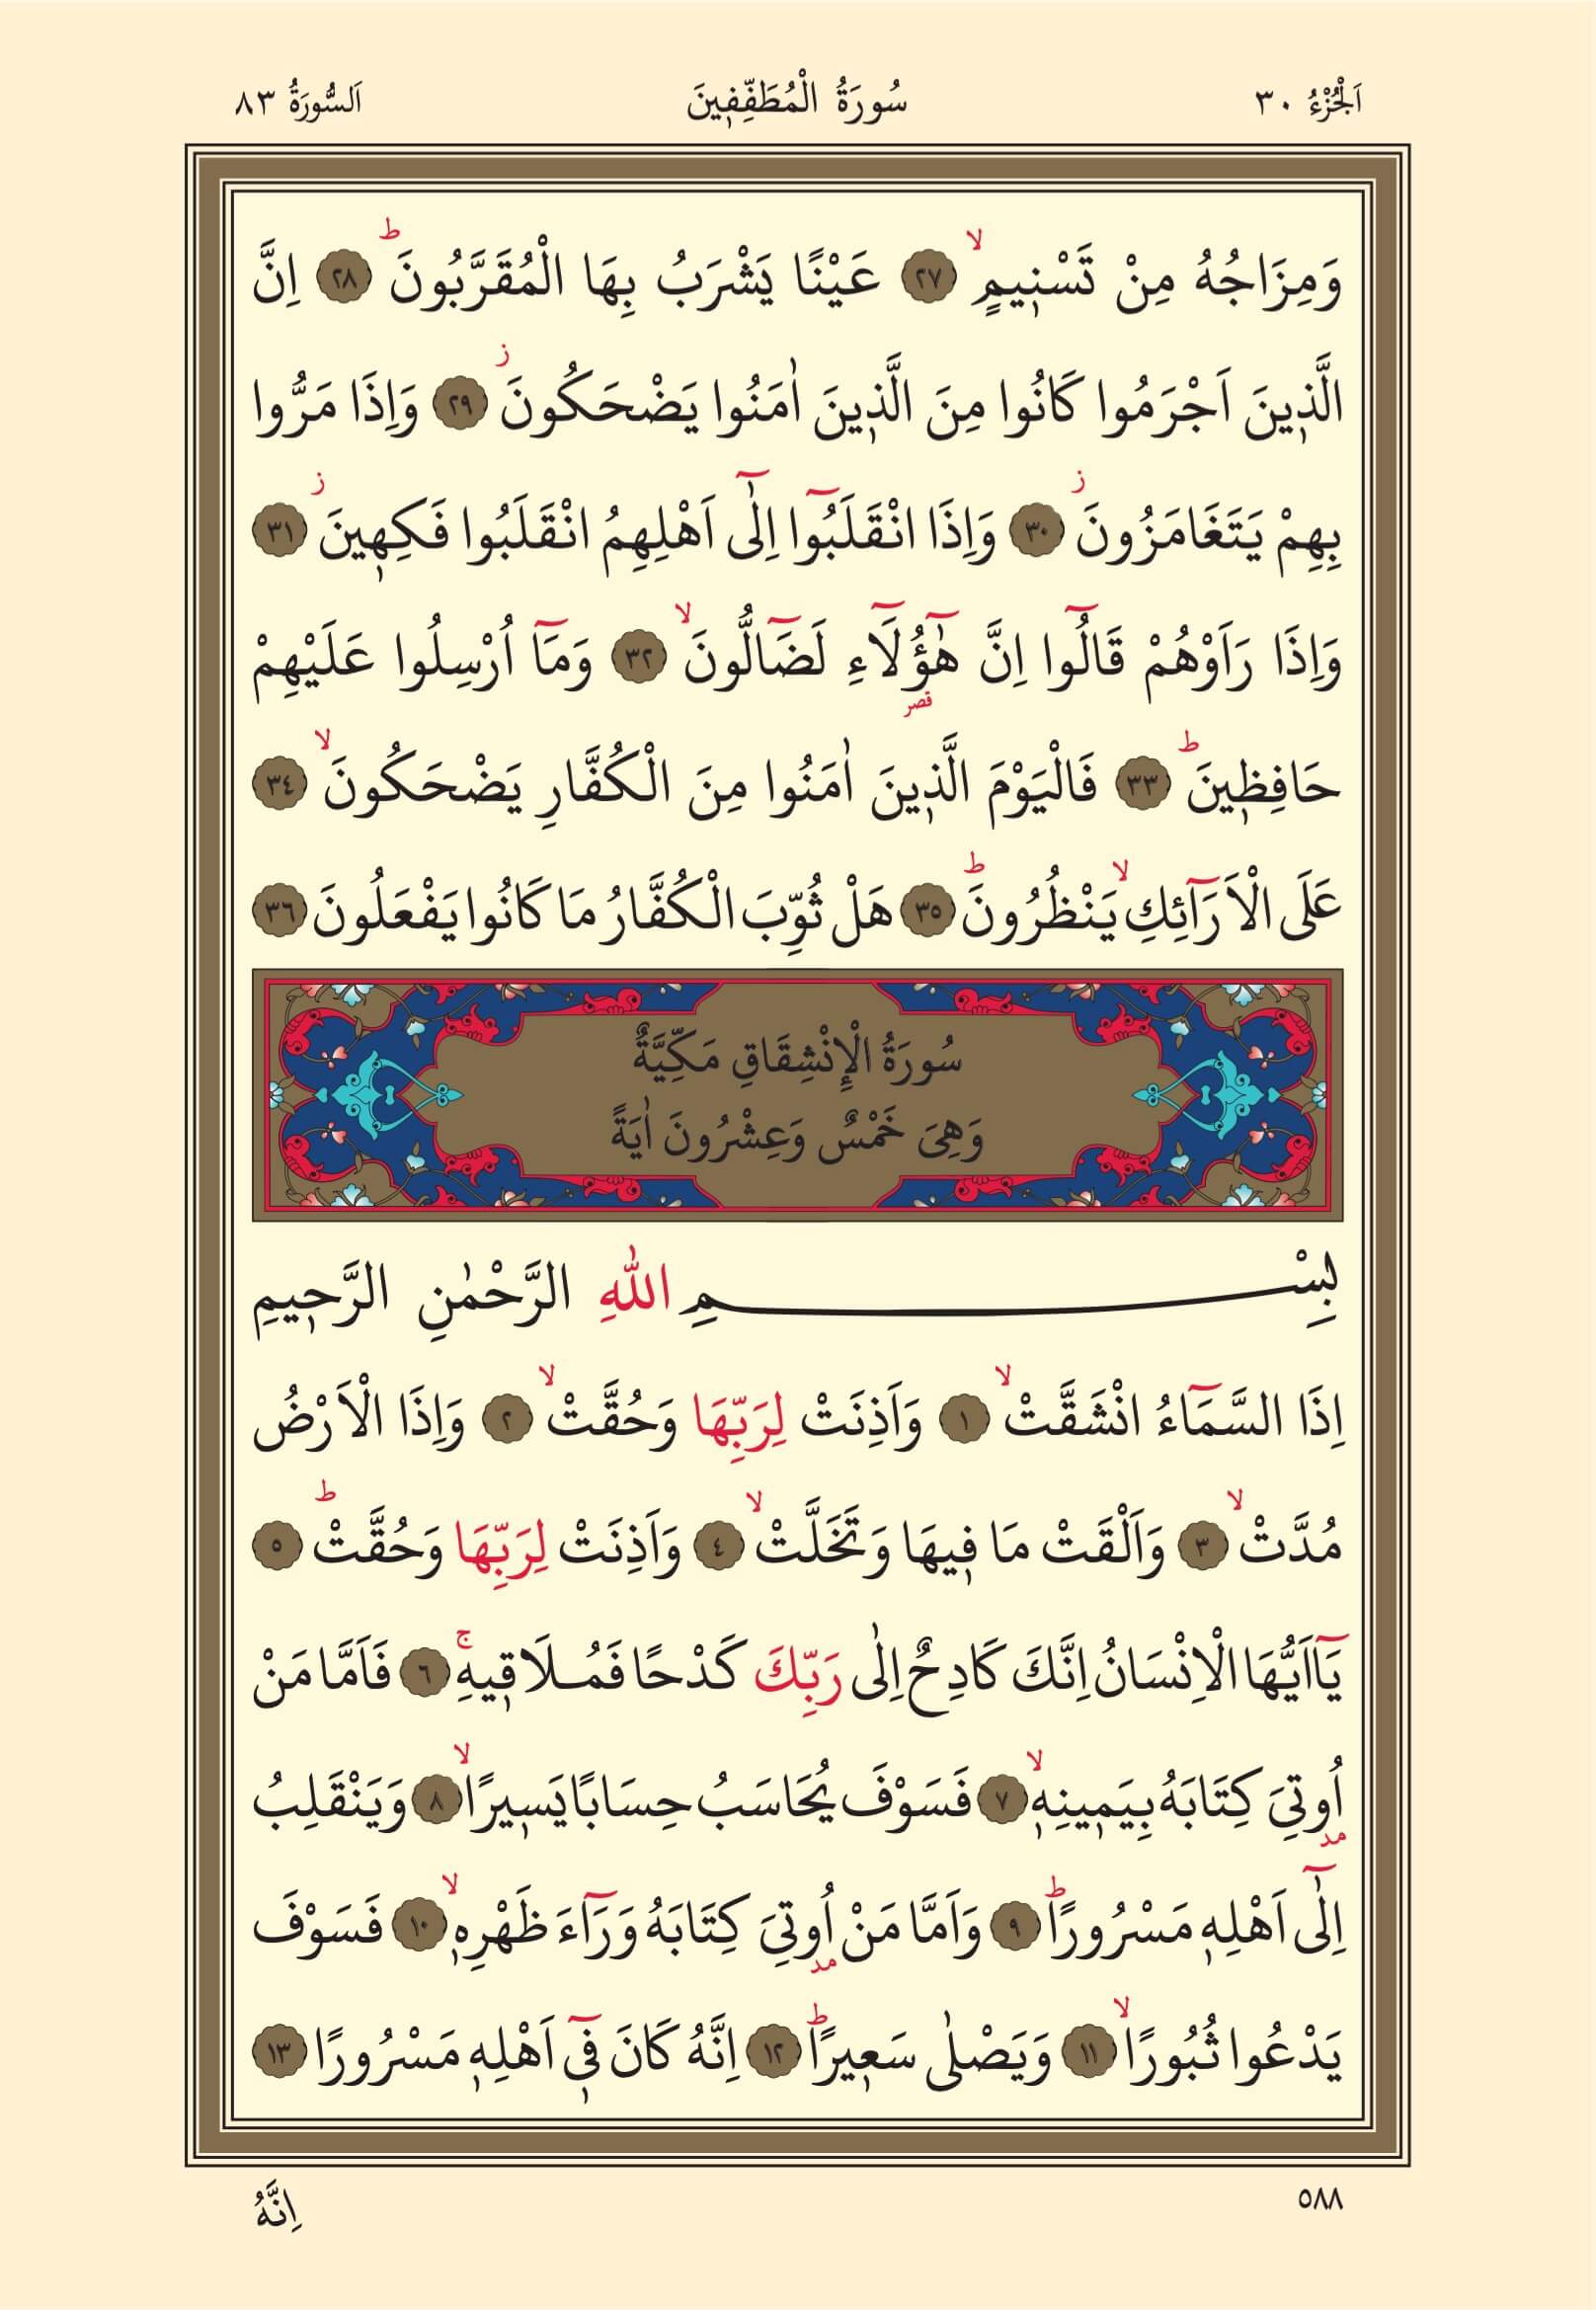 اَلْجُزْءُ ٣٠
سُورَةُ الْمُطَفِّفٖينَ
اَلسُّورَةُ ٨٣
وَمِزَاجُهُ مِنْ تَسْنٖيمٍۙ ﴿٢٧﴾ عَيْنًا يَشْرَبُ بِهَا الْمُقَرَّبُونَؕ ﴿٢٨﴾ اِنَّ
الَّذٖينَ اَجْرَمُوا كَانُوا مِنَ الَّذٖينَ اٰمَنُوا يَضْحَكُونَؗ ﴿٢٩﴾ وَاِذَا مَرُّوا
بِهِمْ يَتَغَامَزُونَؗ ﴿٣٠﴾ وَاِذَا انْقَلَبُٓوا اِلٰٓى اَهْلِهِمُ انْقَلَبُوا فَكِهٖينَؗ ﴿٣١﴾
وَاِذَا رَاَوْهُمْ قَالُٓوا اِنَّ هٰٓؤُ۬لَٓاءِ لَضَٓالُّونَۙ ﴿٣٢﴾ وَمَٓا اُرْسِلُوا عَلَيْهِمْ
قصر
حَافِظٖينَؕ ﴿٣٣﴾ فَالْيَوْمَ الَّذٖينَ اٰمَنُوا مِنَ الْكُفَّارِ يَضْحَكُونَۙ ﴿٣٤﴾
عَلَى الْاَرَٓائِكِۙ يَنْظُرُونَؕ ﴿٣٥﴾ هَلْ ثُوِّبَ الْكُفَّارُ مَا كَانُوا يَفْعَلُونَ ﴿٣٦﴾
سُورَةُ الْإِنْشِقَاقِ مَكِّيَّةٌ
وَهِىَ خَمْسٌ وَعِشْرُونَ اٰيَةً
بِسْمِ اللّٰهِ الرَّحْمٰنِ الرَّحٖيمِ
اِذَا السَّمَٓاءُ انْشَقَّتْۙ ﴿١﴾ وَاَذِنَتْ لِرَبِّهَا وَحُقَّتْۙ ﴿٢﴾ وَاِذَا الْاَرْضُ
مُدَّتْۙ ﴿٣﴾ وَاَلْقَتْ مَا فٖيهَا وَتَخَلَّتْۙ ﴿٤﴾ وَاَذِنَتْ لِرَبِّهَا وَحُقَّتْؕ ﴿٥﴾
يَٓااَيُّهَا الْاِنْسَانُ اِنَّكَ كَادِحٌ اِلٰى رَبِّكَ كَدْحًا فَمُلَاقٖيهِۚ ﴿٦﴾ فَاَمَّا مَنْ
اُو۫تِىَ كِتَابَهُ بِيَمٖينِهٖۙ ﴿٧﴾ فَسَوْفَ يُحَاسَبُ حِسَابًا يَسٖيرًاۙ ﴿٨﴾ وَيَنْقَلِبُ
مد
اِلٰٓى اَهْلِهٖ مَسْرُورًاؕ ﴿٩﴾ وَاَمَّا مَنْ اُو۫تِىَ كِتَابَهُ وَرَٓاءَ ظَهْرِهٖۙ ﴿١٠﴾ فَسَوْفَ
مد
يَدْعُوا ثُبُورًاۙ ﴿١١﴾ وَيَصْلٰى سَعٖيرًاؕ ﴿١٢﴾ اِنَّهُ كَانَ فٖٓى اَهْلِهٖ مَسْرُورًا ﴿١٣﴾
٥٨٨
اِنَّهُ